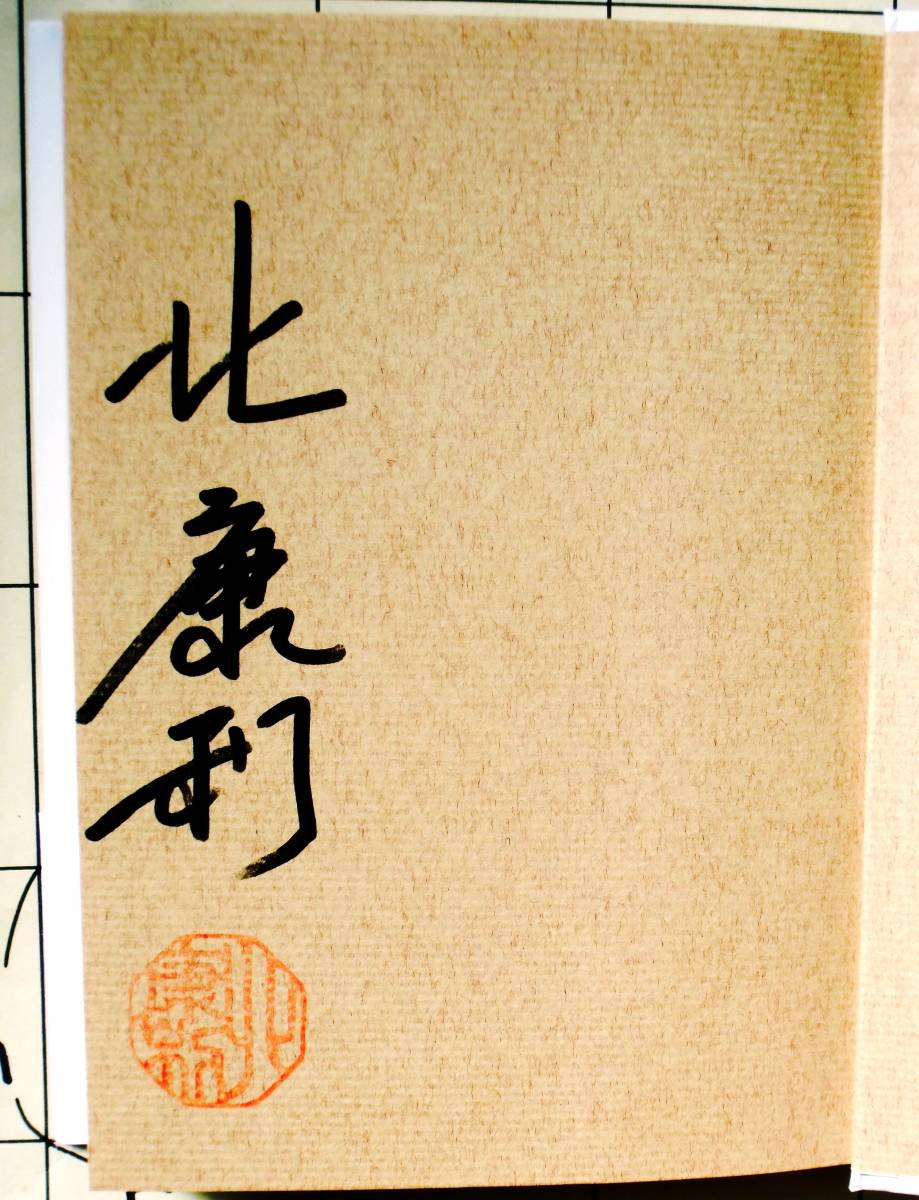 北康利
北
康利